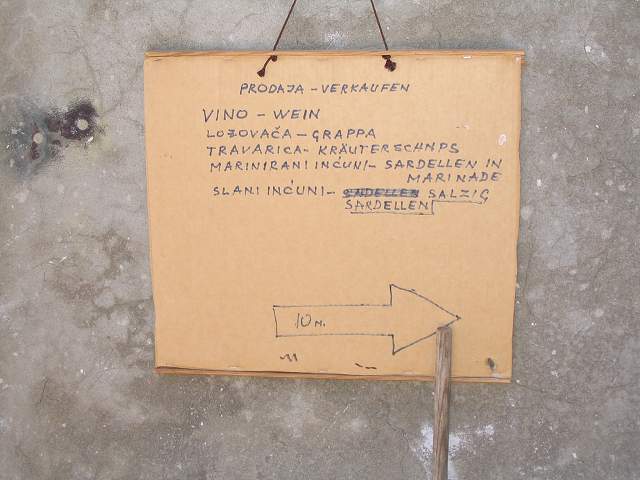 PRODAJA - VERKAUFEN
VINO - WEIN
LOZOVAČA - GRAPPA
TRAVARICA - KRÄUTERSCHNPS
MARINIRANI INĆUNI - SARDELLEN IN
MARINADE
SLANI INĆUNI - SALZIG
SARDELLEN
10 M.